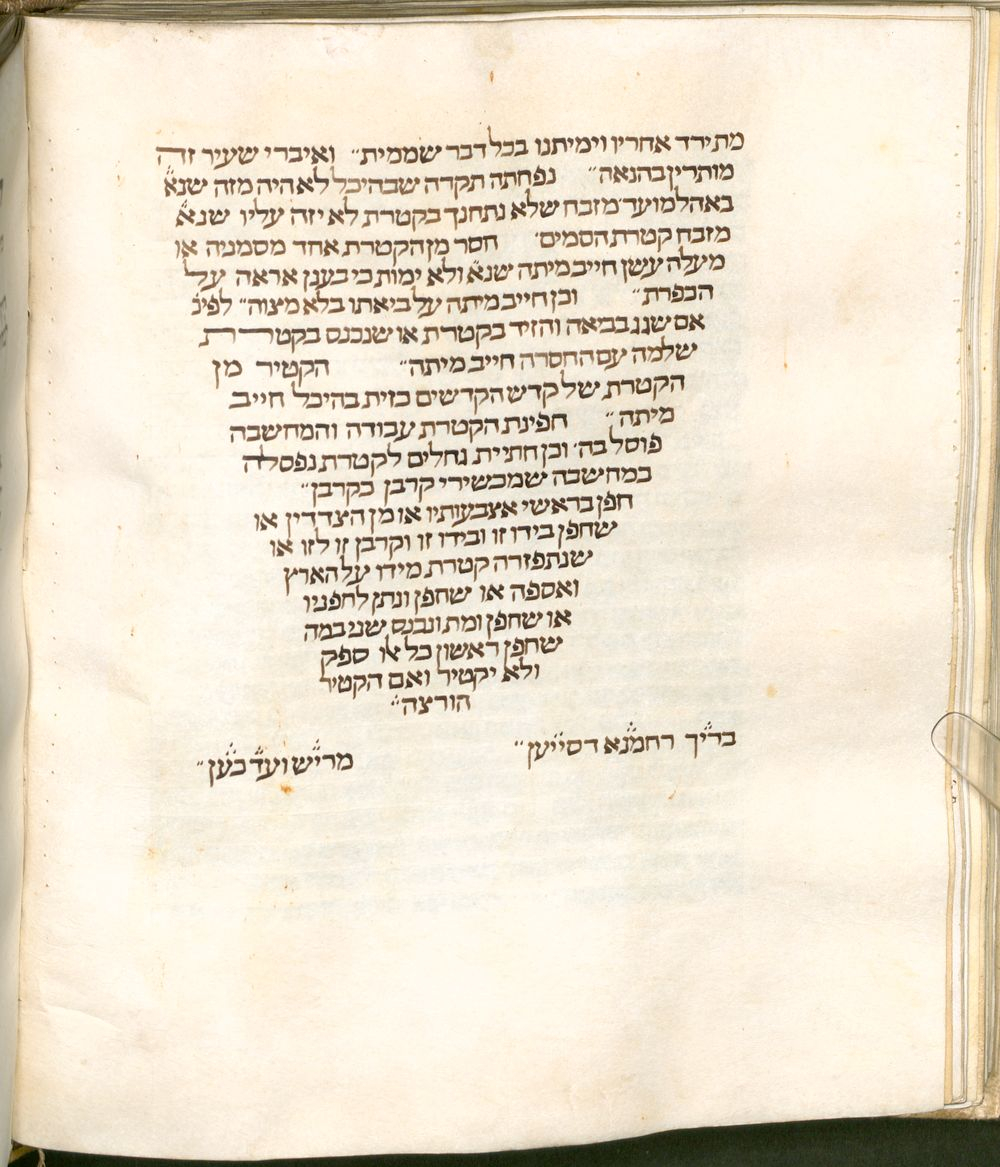 מתירד אחריו וימיתנו בכל דבר שממית״ ואיברי שעיר זה
מותרין בהנאה״ נפחתה תקרה שבהיכל לא היה מזה שנא
באהל מועד מזבח שלא נתחנך בקטרת לא יזה עליו שנא
מזבח קטרת הסמים׳ חסר מן הקטרת אחד מסמניה או
מעלה עשן חייב מיתה שנא ולא ימות כי בענן אראה על
הכפרת״ וכן חייב מיתה על ביאתו בלא מצוה״ לפיכ
אם שגג בביאה והזיד בקטרת או שנכנס בקטרת
שלמה עם החסרה חייב מיתה״ הקטיר מן
הקטרת של קדש הקדשים כזית בהיכל חייב
מיתה״ חפינת הקטרת עבודה והמחשבה
פוסל בה׳ וכן חתיית גחלים לקטרת נפסלה
במחשבה שמכשירי קרבן כקרבן״
חפן בראשי אצבעותיו או מן הצדדין או
שחפן בידו זו ובידו זו וקרבן זו לזו או
שנתפזרה קטרת מידו על הארץ
ואספה או שחפן ונתן לחפניו
או שחפן ומת ונכנס שני במה
שחפן ראשון כל או ספק
ולא יקטיר ואם הקטיר
הורצה״
בריך רחמנא דסייען״ מריש ועד כען״